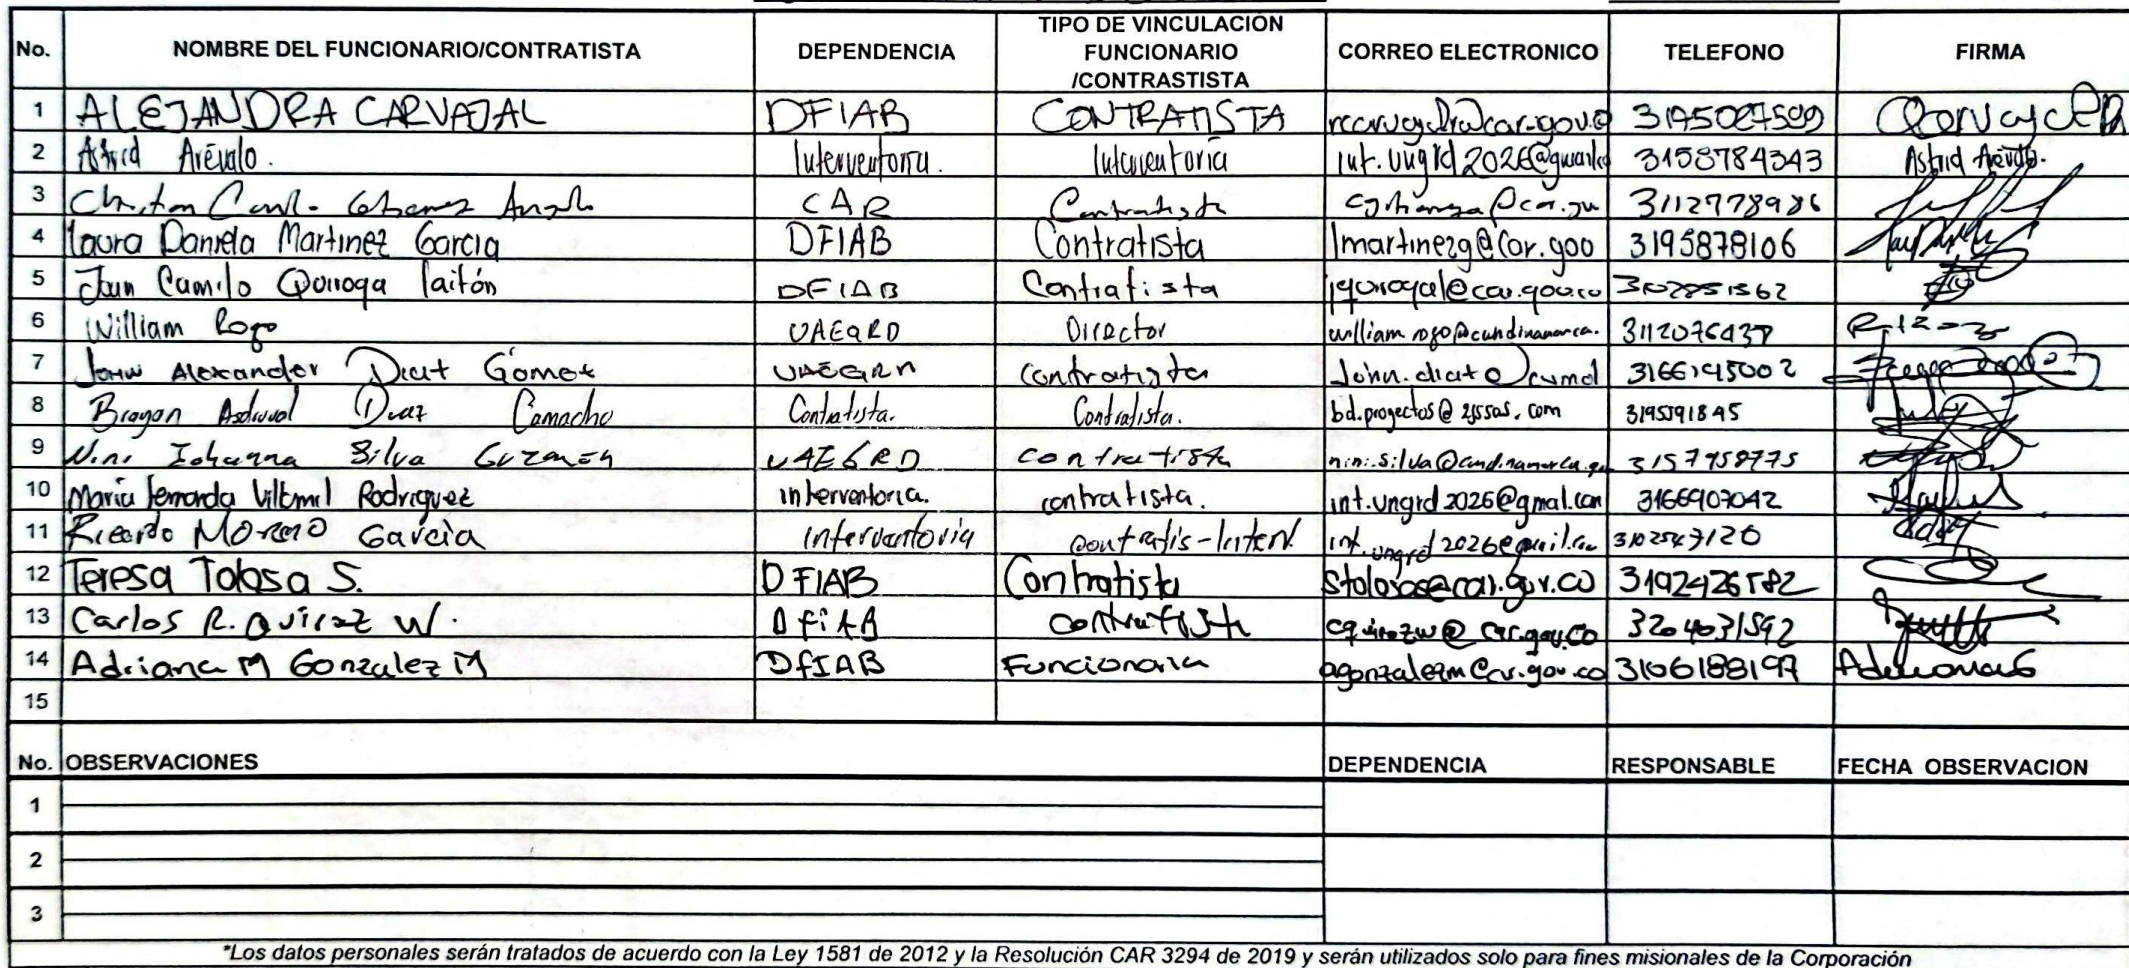 No. NOMBRE DEL FUNCIONARIO/CONTRATISTA DEPENDENCIA TIPO DE VINCULACIÓN FUNCIONARIO /CONTRASTISTA CORREO ELECTRONICO TELEFONO FIRMA
1 ALEJANDRA CARVAJAL DFIAB CONTRATISTA
2 Astrid Arévalo. Interventoria. Interventoría 3158784343 Astrid Arévalo.
3 CAR Contratista 3112778986
4 Laura Daniela Martinez Garcia DFIAB Contratista lmartinezg@car.gov 3195878106
5 Juan Camilo Quiroga laitón DFIAB Contratista
6 William Rozo UAEGRD Director 3112076437
7 John Alexander Diaz Gómez UAEGRD contratista
8 Brayan Diaz Camacho Contratista. Contratista. 3195591845
9 Nini Johanna Silva Guzman UAEGRD contratista 3157958775
10 Maria fernanda Villamil Rodriguez interventoria. contratista. int.ungrd2026@gmail.com 3166907042
11 Ricardo Moreno Garcia interventoria contratis-Interv. int.ungrd2026@gmail.com 3102547120
12 Teresa Tolosa S. DFIAB Contratista 3192426582
13 Carlos R. Quiroz W. DFiAB contratista cquirozw@car.gov.co 3204031592
14 Adriana M Gonzalez M DfIAB Funcionaria agonzalezm@car.gov.co 3106188197
15
No. OBSERVACIONES DEPENDENCIA RESPONSABLE FECHA OBSERVACION
1
2
3
*Los datos personales serán tratados de acuerdo con la Ley 1581 de 2012 y la Resolución CAR 3294 de 2019 y serán utilizados solo para fines misionales de la Corporación